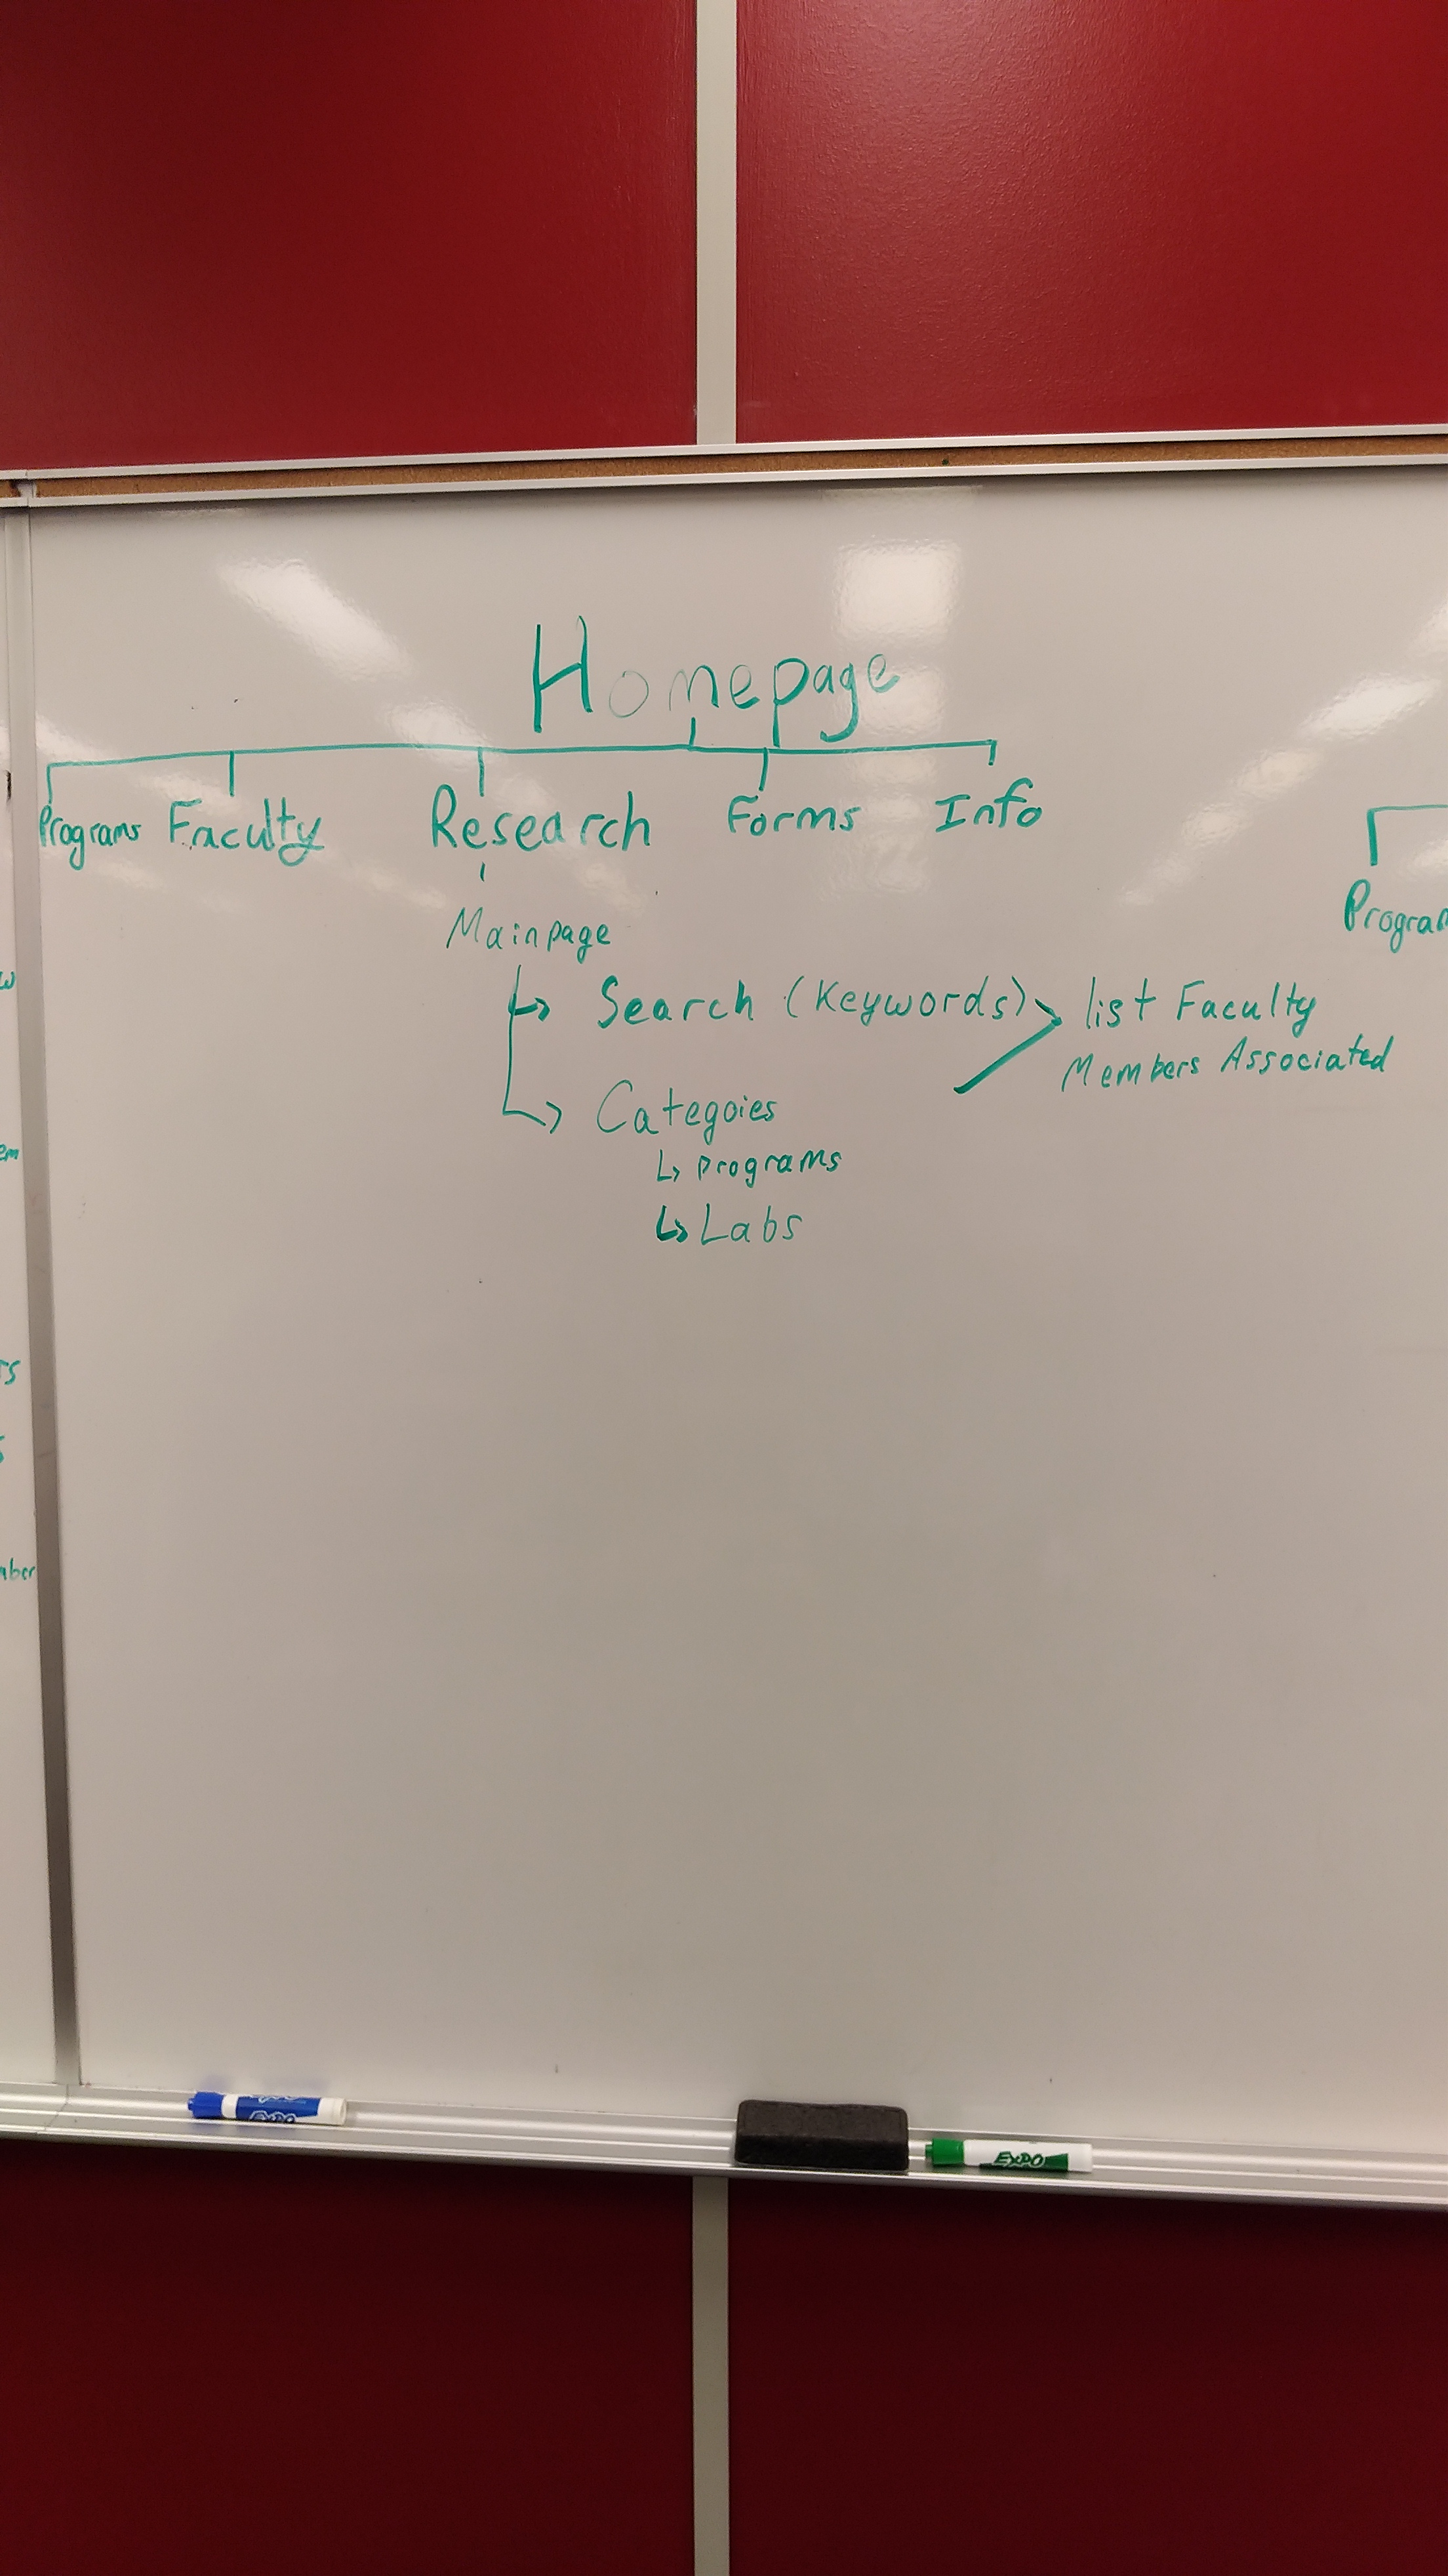 Homepage
Programs Faculty Research Forms Info
Mainpage
Search (Keywords) list Faculty
Members Associated
Categoies
programs
Labs
EXPO
EXPO